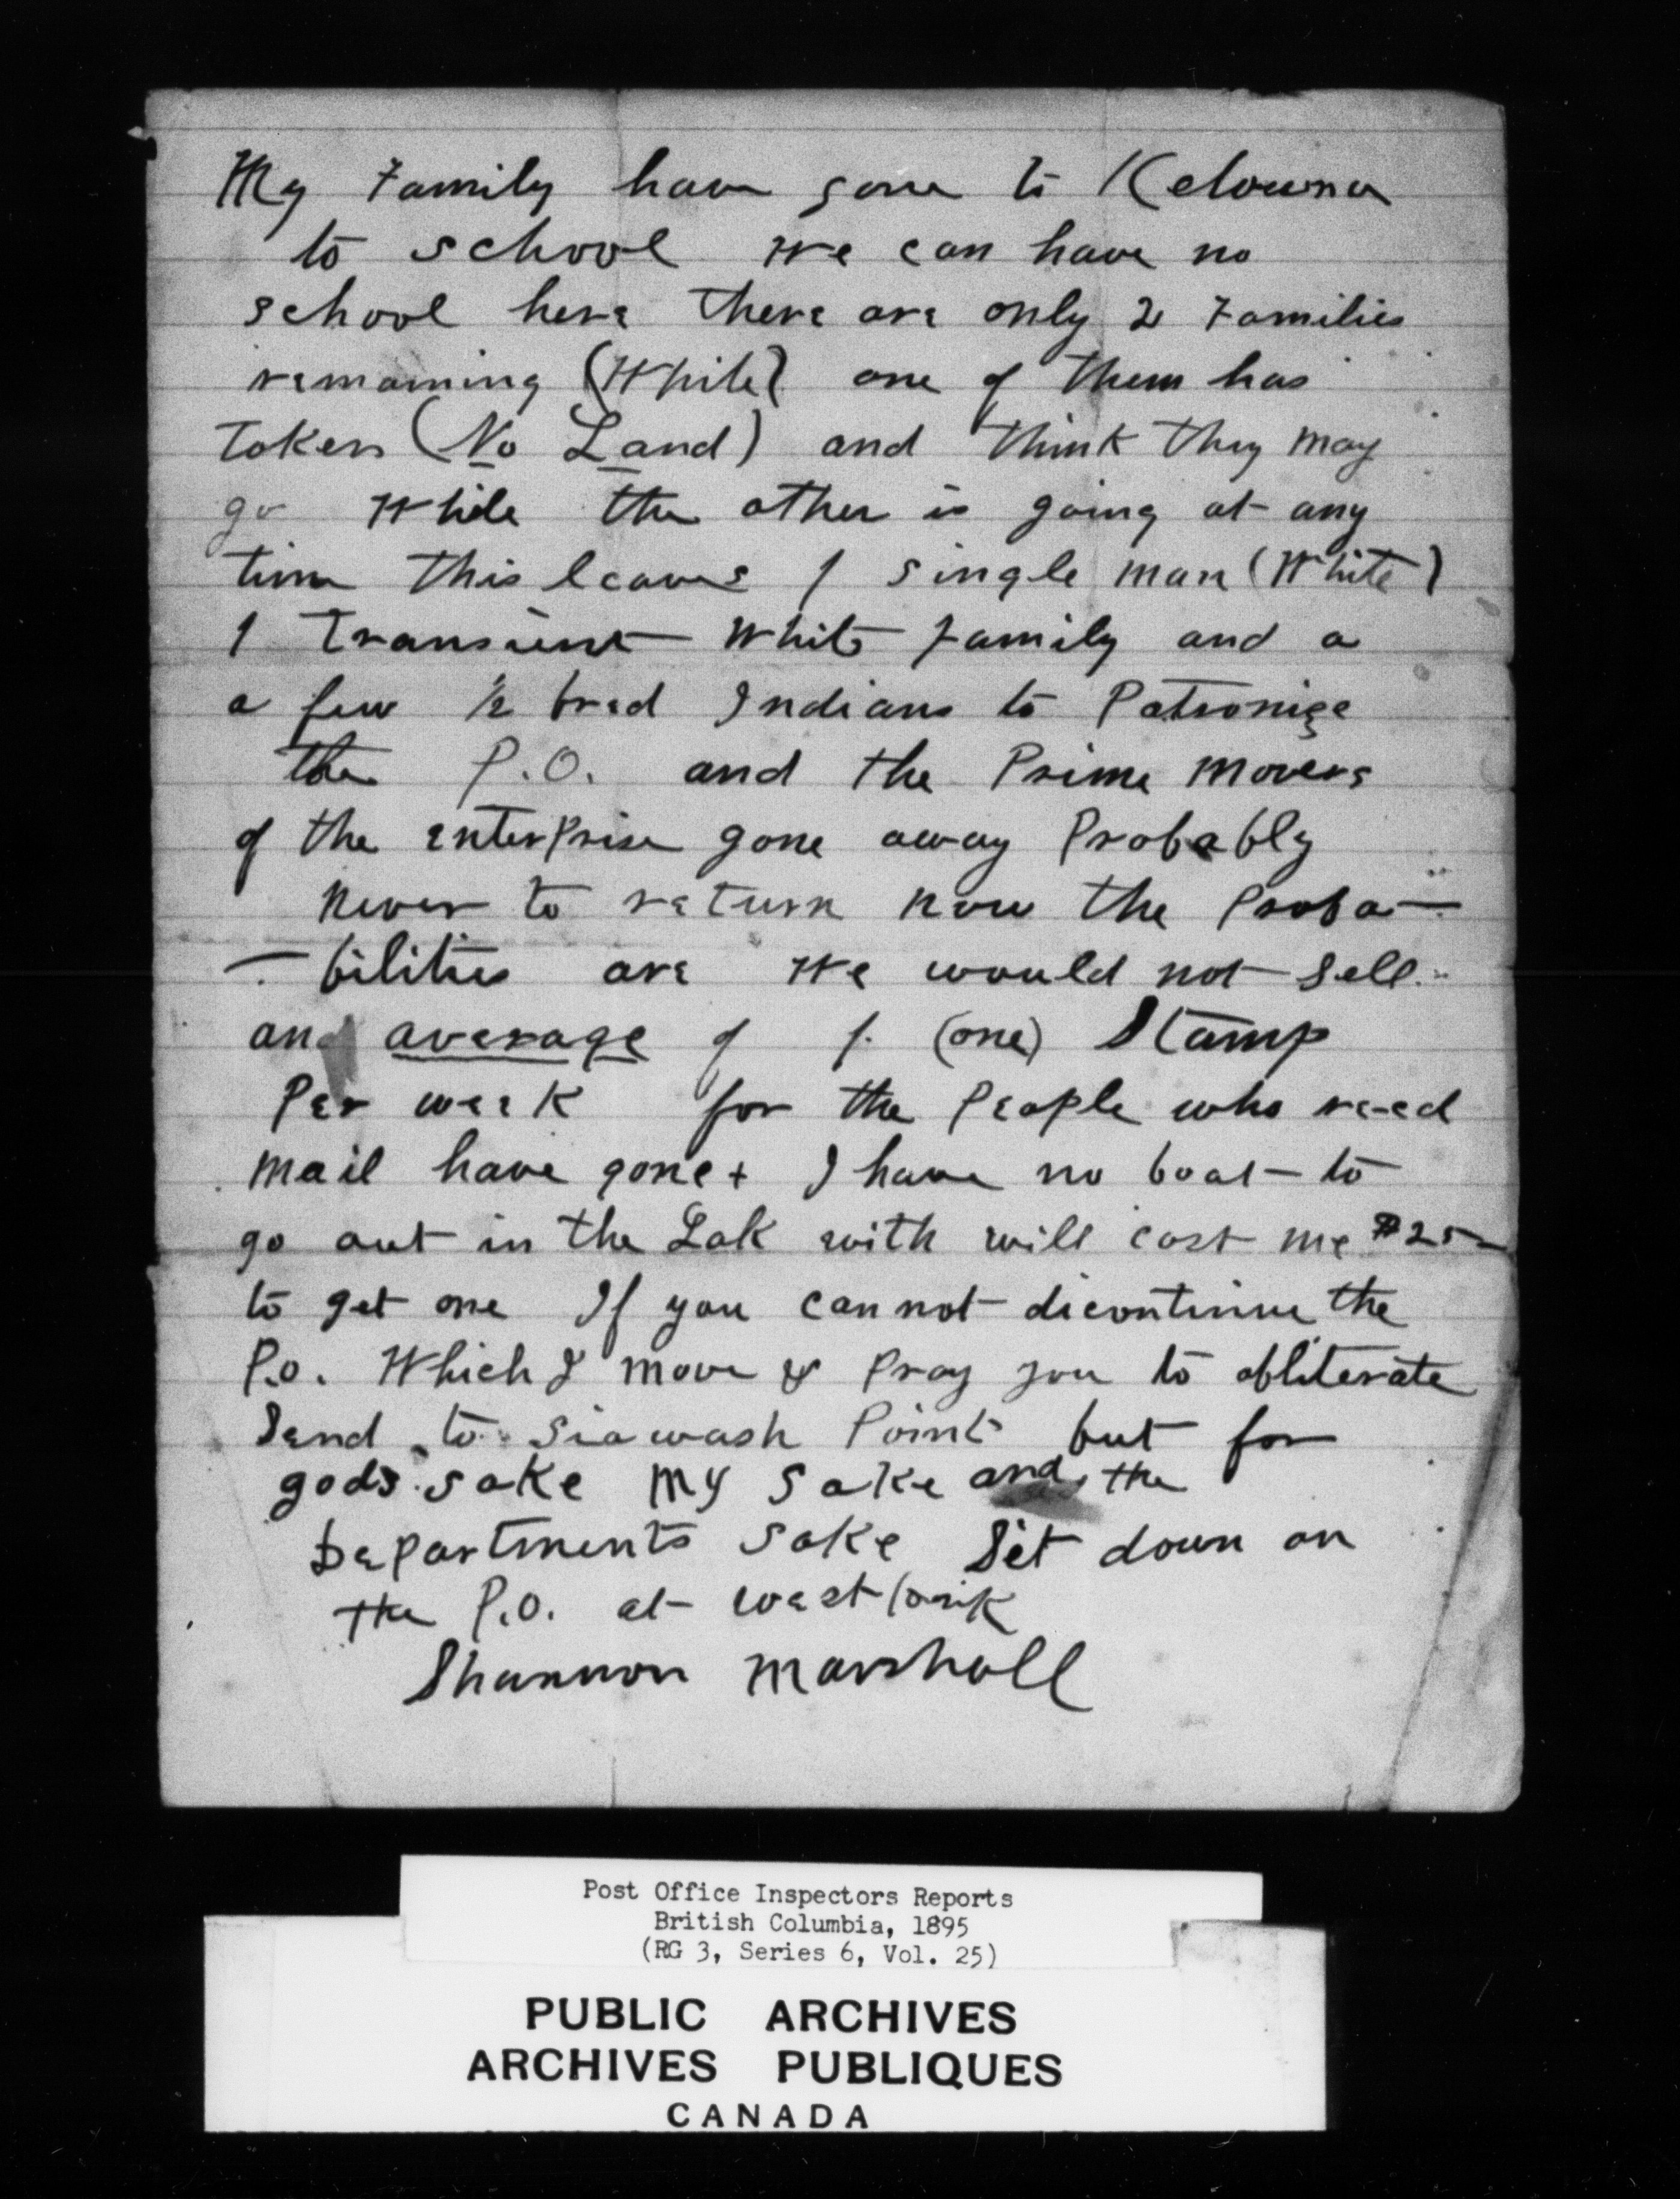 My Family have gone to Kelowna
to school We can have no
school here There are only 2 Families
remaining (White) one of them has
Taken (No Land) and think they may
go While the other is going at any
time This leaves 1 single man (White)
1 Transient White Family and a
a few ½ bred Indians to Patronize
the P.O. and the Prime movers
of the enterprise gone away Probably
never to return now the Proba-
- bilities are We would not sell
an average of 1. (one) Stamp
Per week for the People who reed
mail have gone + I have no boat to
go out in the Lak with will cost me $25
to get one If you cannot dicontinue the
P.O. Which I move & Pray you to obliterate
Send to Siawash Point but for
gods sake My sake and the
Departments sake Set down on
the P.O. at westbank
Shannon Marshall
Post Office Inspectors Reports
British Columbia, 1895
(RG 3, Series 6, Vol. 25)
PUBLIC ARCHIVES
ARCHIVES PUBLIQUES
CANADA